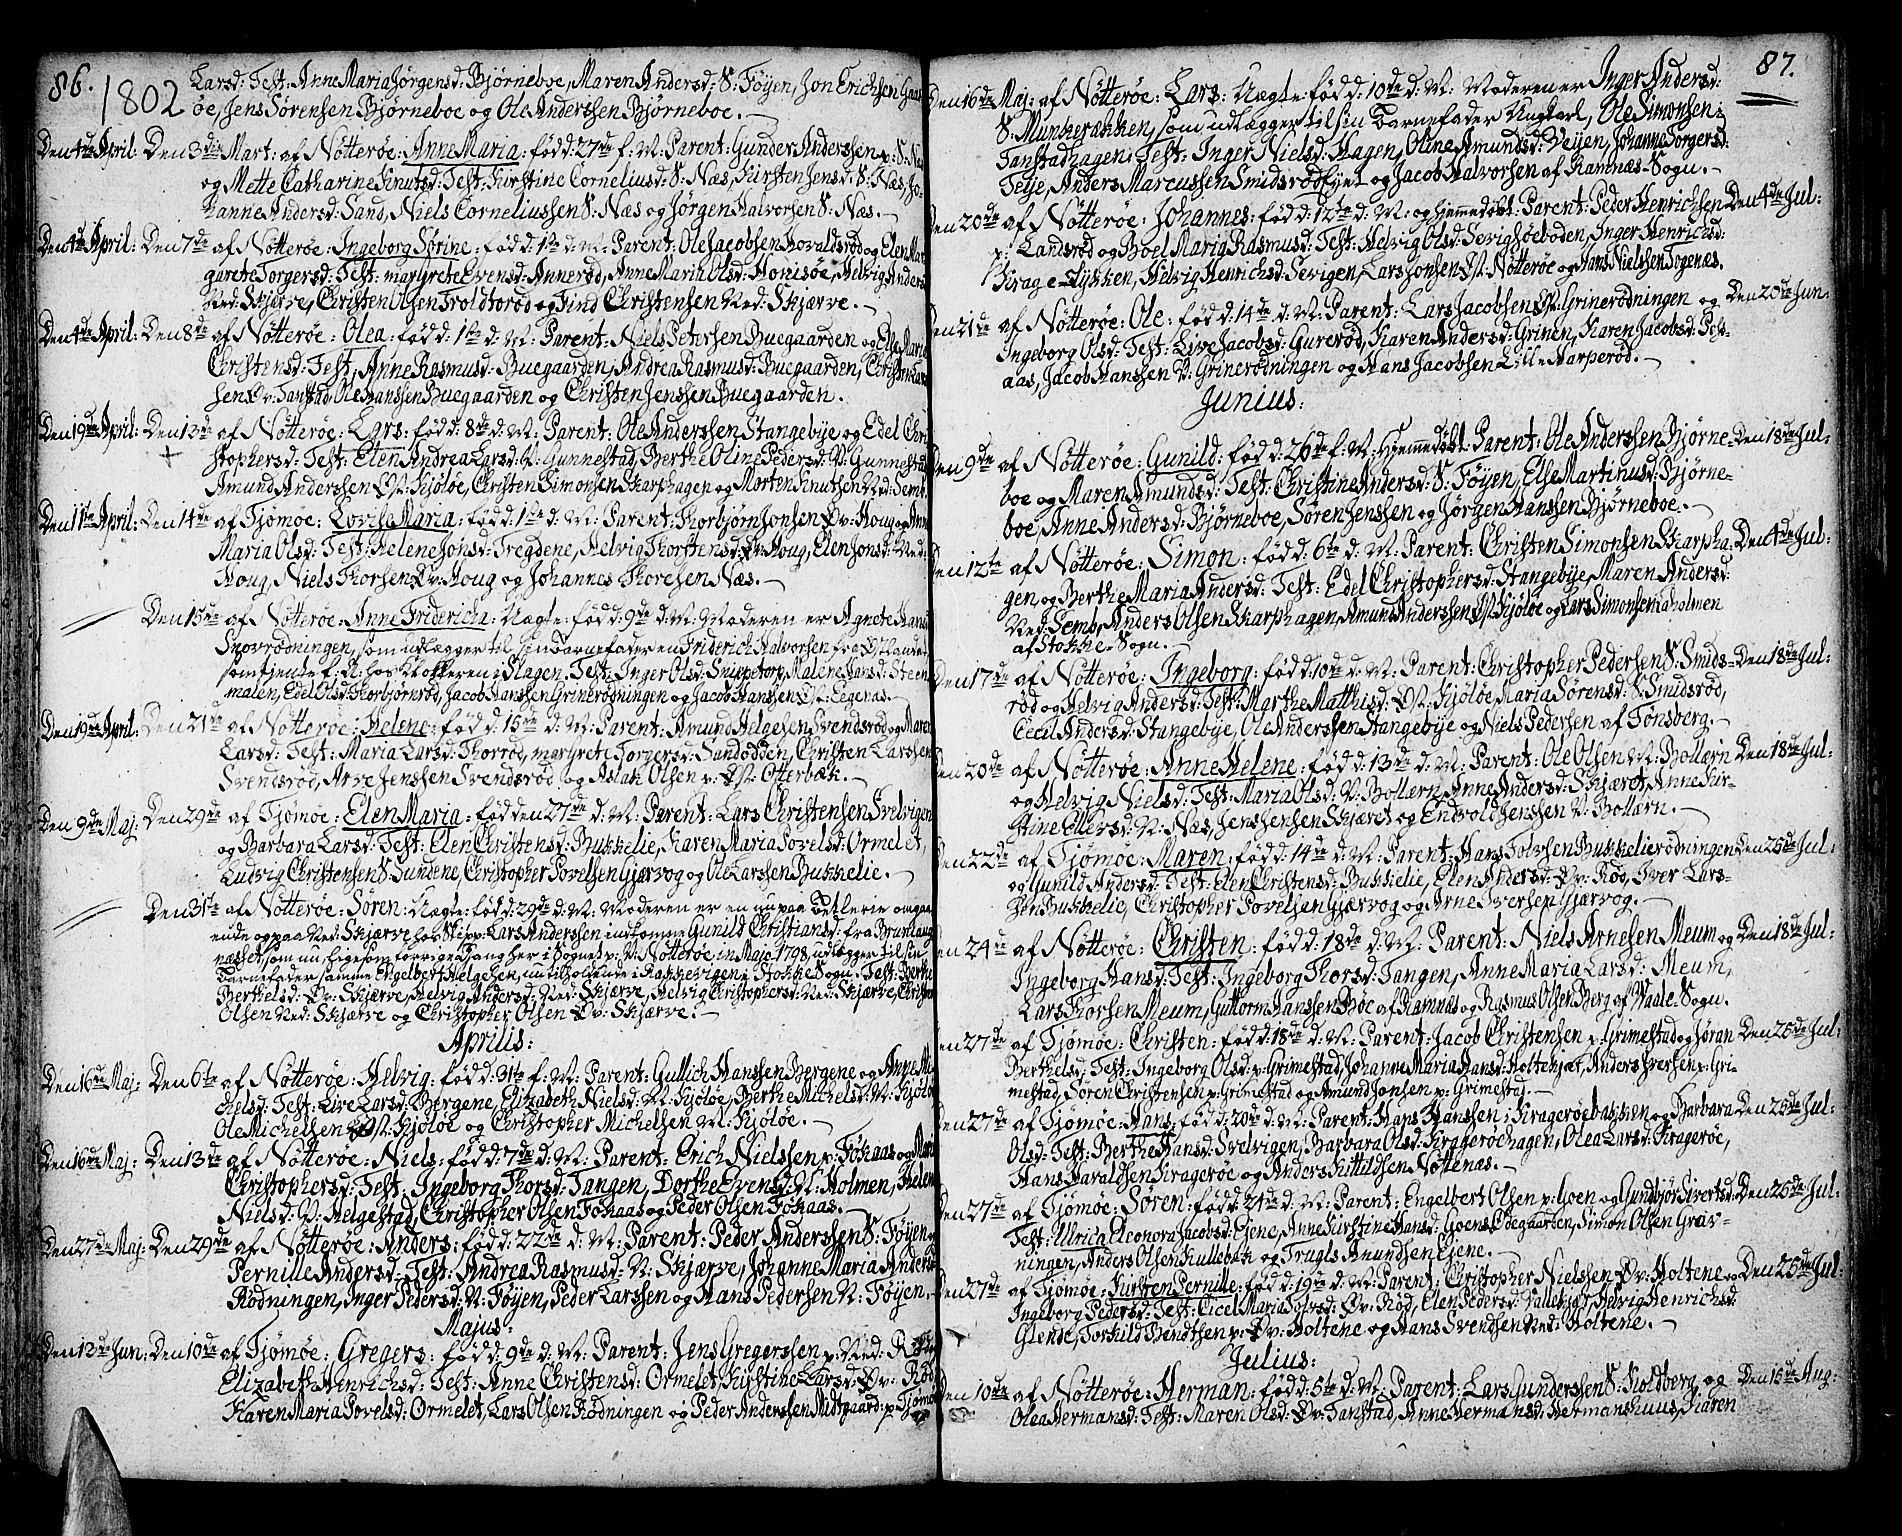 86.
1802
Larsd: Test: Anne Maria Jørgensd: Bjørneboe, Maren Andersd: S: Føyen, Jon Erichsen Gaar
øe, Jens Sørensen Bjørneboe og Ole Anderssen Bjørneboe.
Den 4de April: Den 3die Mart: af Nøtterøe: Anne Maria: född: 27de f: M: Parent: Gunder Anderssen p: S: Næs
og Mette Catharine Knutsd: Test: Kirstine Corneliusd: S: Næs, Kirsten Jensd: S: Næs, Jo-
hanne Andersd: Sand, Niels Corneliussen S: Næs og Jørgen Halvorsen S: Næs.
Den 4de April: Den 7de af Nøtterøe: Ingeborg Sørine: född: 1ste d: M: Parent: Ole Jacobsen Hovaldsrød og Elen Mar
garete Torgersd: Test: margrete Evensd: Annerød, Anne Marth Olsd: Hovisøe, Helvig Anders
Ned: Skjærve, Christen Olsen Troldtorød og Find Christensen Ned: Skjærve.
Den 4de April: Den 8de af Nøtterøe: Olea: född: 1ste d: M: Parent: Niels Petersen Buegaarden og Else Marie
Christensd: Test, Anne Rasmusd: Buegaarden, Andrea Rasmusd: Buegaarden, Christen Lars
sen Øv: Tanstad, Ole Hanssen Buegaarden og Christen Jenssen Buegaarden.
Den 19de April: Den 13de af Nøtterøe: Lars: född: 8de d: M: Parent: Ole Anderssen Stangebÿe og Edel Chri
stophersd: Test: Elen Andrea Larsd: V: Gunnestad, Berthe Oline Pedersd: V: Gunnestad
Amund Anderssen Øst: Kjøløe, Christen Simonsen Skarphagen og Morten Knutsen Ned: Semb.
Den 11te April: Den 14de af Tjømøe: Lovisa Maria: född: 1ste d: M: Parent: Thorbjørn Jonsen Øv: Houg og Anne
Maria Olsd: Test: Helene Jonsd: Tregdene, Helvig Thorstensd: Øv: Houg, Elen Jonsd: Ned:
Houg, Niels Thorsen Øv: Houg og Johannes Thoresen Næs.
Den 15de af Nøtterøe: Anne Fridericha: Uægte: född: 9de d: M: Moderen er Agnete Hans
Snovrødningen, som udlægger til sin Barnefader en Friderich Halvorsen fra Østlandet
som tjente f: A: hos Klokkeren i Slagen. Test: Inger Olsd: Snippetorp, Malene Hansd: Steen
malen, Edel Olsd: Thorbjørnrød, Jacob Hanssen Grinerødningen og Jacob Hanssen Øst: Eegenæs.
Den 19de April: Den 21de af Nøtterøe: Helene: född: 15de d: M: Parent: Amund Helgesen Svendsrød og Maren
Larsd: Test: Maria Larsd: Thorrød, margrete Torgersd: Sundodden, Christen Larssen
Svendsrød, Arve Jenssen Svendsrød og Aslak Olsen p: Øst: Otterbæk.
Den 9de Maj: Den 29de af Tjømøe: Elen Maria: född den 27de d: M: Parent: Lars Christensen Svelvigen
og Barbara Larsd: Test: Elen Christensd: Bukkelie, Karen Maria Povelsd: Ormelet,
Ludvig Christensen S: Sundene, Christopher Povelsen Gjærvog og Ole Larssen Bukkelie.
Den 31te af Nøtterøe: Søren: Uægte: född: 29de d: M: Moderen er en nu paa Betlerie omgaa
ende og paa Ned: Skjærve hos Skipp: Lars Anderssen indkomne Gunild Christiansd: fra Brunlaug
næsset, som nu ligesom forrige Gang her i Sognet p: V: Nøtterøe in Majo 1798, udlægger til sin
Barnefader samme Engelbert Helgesen, nu tilholdende i Rakkevigen i Stokke Sogn. Test: Berthe
Berthelsd: Øv: Skjærve, Helvig Andersd: Ned: Skjærve, Helvig Christophersd: Ned: Skjærve, Christen
Olsen Ned: Skjærve og Christopher Olsen Øv: Skjærve.
Aprilis:
Den 16de Maj: Den 6te af Nøtterøe: Helvig: född: 31te f: M: Parent: Gullich Hanssen Bergene og Anne Mi
chelsd: Test: Live Larsd: Bergene, Elizabeth Nielsd: V: Kjøløe, Berthe Michelsd: V: Kjøløe
Ole Michelsen Øst: Kjøløe og Christopher Michelsen V: Kjøløe.
Den 16de Maj: Den 13de af Nøtterøe: Niels: född: 7de d: M: Parent: Erich Nielssen p: Føkaas og Maria
Christophersd: Test: Ingeborg Thorsd: Tangen, Dorthe Evensd: V: Holmen, Helene
Nielsd: V: Helgestad, Christopher Olsen Føkaas og Peder Olsen Føkaas.
Den 27de Maj: Den 29de af Nøtterøe: Anders: född: 22de d: M: Parent: Peder Anderssen S: Føyen og
Pernille Andersd: Test: Andrea Rasmusd: V: Skjærve, Johanne Maria Andersd
Rødningen, Inger Pedersd: V: Føyen, Peder Larssen og Hans Pedersen V: Føyen.
Majus:
Den 13de Jun: Den 10de af Tjømøe: Gregers: född: 9de d: M: Parent: Jens Gregerssen p: Ned: Rød og
Elizabeth Hinrichsd: Test: Anne Christensd: Ormelet, Kirstine Larsd: Øv: Rød
Karen Maria Povelsd: Ormelet, Lars Olsen Rødningen og Peder Anderssen Midtgaard: p: Tjømøe
87.
Den 16de Maj: af Nøtterøe: Lars: Uægte: född: 10de d: M: Moderen er Inger Andersd:
S: Munkerækken, som udlægger til sin Barnefader Ungkarl, Ole Simonsen
Tanstadhagen: Test: Inger Nielsd: Hagen, Oline Amundsd: Veÿen, Johanna Torgersd:
Teÿe, Anders Marcussen Smidsrød Eÿet og Jacob Halvorsen af Ramnæs-Sogn.
Den 20de af Nøtterøe: Johannes: född: 12te d: M: og hjemmedøbt. Parent: Peder Henrichsen Den 4de Jul:
p: Landsrød og Boel Maria Rasmusd: Test: Helvig Olsd: Sevig Søeboden, Inger Henrichsd:
Krage-Lykken, Helvig Henrichsd: Sevigen, Lars Jonsen Øst: Nøtterøe og Hans Nielssen Togenes.
Den 21de af Nøtterøe: Ole: född: 14de d: M: Parent: Lars Jacobsen Øst: Grinerödningen og Den 20de Jun:
Ingeborg Olsd: Test: Live Jacobsd: Gurerød, Karen Andersd: Grinen, Karen Jacobsd: Føk-
aas, Jacob Hanssen V: Grinerödningen og Hans Jacobsen Lille Aarperød.
Junius:
Den 9de af Nøtterøe: Gunild: född: 26de f: M: Hjemmedøbt. Parent: Ole Anderssen Bjørne- Den 18de Jul:
boe og Maren Amundsd: Test: Christine Andersd: S: Føyen, Else Martinusd: Bjørne-
boe, Anne Andersd: Bjørneboe, Søren Jenssen og Jørgen Hanssen Bjørneboe.
Den 12te af Nøtterøe: Simon: född: 6te d: M: Parent: Christen Simonsen Skarpha: Den 4de Jul:
gen og Berthe Maria Andersd: Test: Edel Christophersd: Stangebÿe, Maren Andersd:
Ned: Semb, Anders Olsen Skarphagen, Amund Anderssen Øst: Kjøløe og Lars Simonsen i Aholmen
af Stokke-Sogn.
Den 17de af Nøtterøe: Ingeborg: född: 10de d: M: Parent: Christopher Pedersen S: Smids- Den 18de Jul:
rød og Helvig Andersd: Test: Marthe Matthisd: Øst: Kjøløe, Maria Sørensd: S: Smidsrød,
Cecil Andersd: Stangebÿe, Ole Anderssen Stangebÿe og Niels Pedersen af Tønsberg.
Den 20de af Nøtterøe: Anne Helene: född: 13de d: M: Parent: Ole Olsen V: Bollærn Den 18de Jul:
og Helvig Nielsd: Test: Maria Olsd: V: Bollern, Anne Andersd: Skjæret, Anne Kir-
stine Ellefsd: V: Næs, Jens Jensen Skjæret og Endvold Jenssen V: Bollærn.
Den 22de af Tjømøe: Maren: född: 14de d: M: Parent: Hans Tolvsen Bukkelierødningen Den 25de Jul:
og Gunild Andersd: Test: Elen Christensd: Bukkelie, Elen Andersd: Øv: Røg, Iver Lars-
sen Bukkelie, Christopher Povelsen Gjærvog og Arne Iversen Gjærvog.
Den 24de af Nøtterøe: Christen: född: 18de d: M: Parent: Niels Arnesen Meum og Den 18de Jul:
Ingeborg Hansd: Test: Ingeborg Thorsd: Tangen, Anne Maria Larsd: Meum,
Lars Thorsen Meum, Guttorm Hanssen Bøe af Ramnæs og Rasmus Olsen Berg af Vaale-Sogn.
Den 27de af Tjømøe: Christen: född: 18de d: M: Parent: Jacob Christensen p: Grimestad og Jøran Den 25de Jul:
Berthelsd: Test: Ingeborg Olsd: p: Grimestad, Johanne Maria Hansd: Holtekjær, Anders Iversen p: Gri-
mestad, Søren Christensen p: Grimestad og Amund Jonsen p: Grimestad.
Den 27de af Tjømøe: Hans: född: 20de d: M: Parent: Hans Hanssen i Kragerøebakken og Barbara Den 25de Jul:
Olsd: Test: Berthe Hansd: Svelvigen, Barbara Olsd: Kragerøehagen, Olea Larsd: Kragerøe,
Hans Haraldsen Kragerøe og Anders Kittildsen Nøttenæs.
Den 27de af Tjømøe: Søren: född: 21de d: M: Parent: Engelbert Olsen p: Goen og Gundbjør Sivertsd: Den 25de Jul:
Test: Ulrica Eleonora Jacobsd: Ejene, Anne Kirstine Hansd: Goens Ødegaarden, Simon Olsen Grav-
ningen, Anders Olsen Kullebæk og Trugls Anundsen Ejene.
Den 27de af Tjømøe: Kirsten Pernille: född: 19de d: M: Parent: Christopher Nielssen Øv: Holtene og Den 25de Jul:
Ingeborg Pedersd: Test: Cicel Maria Olsd: Øv: Rød, Elen Pedersd: Vallekjær, Helvig Henrichsd:
Glende, Torkild Bendtsen p: Øv: Holtene og Hans Svendsen Ned: Holtene.
Julius:
Den 10de af Nøtterøe: Herman: född: 5te d: M: Parent: Lars Gunderssen S: Holdberg og Den 15de Aug:
Olea Hermansd: Test: Maren Olsd: Øv: Tanstad, Anne Hermansd: Hermanshuus, Karen